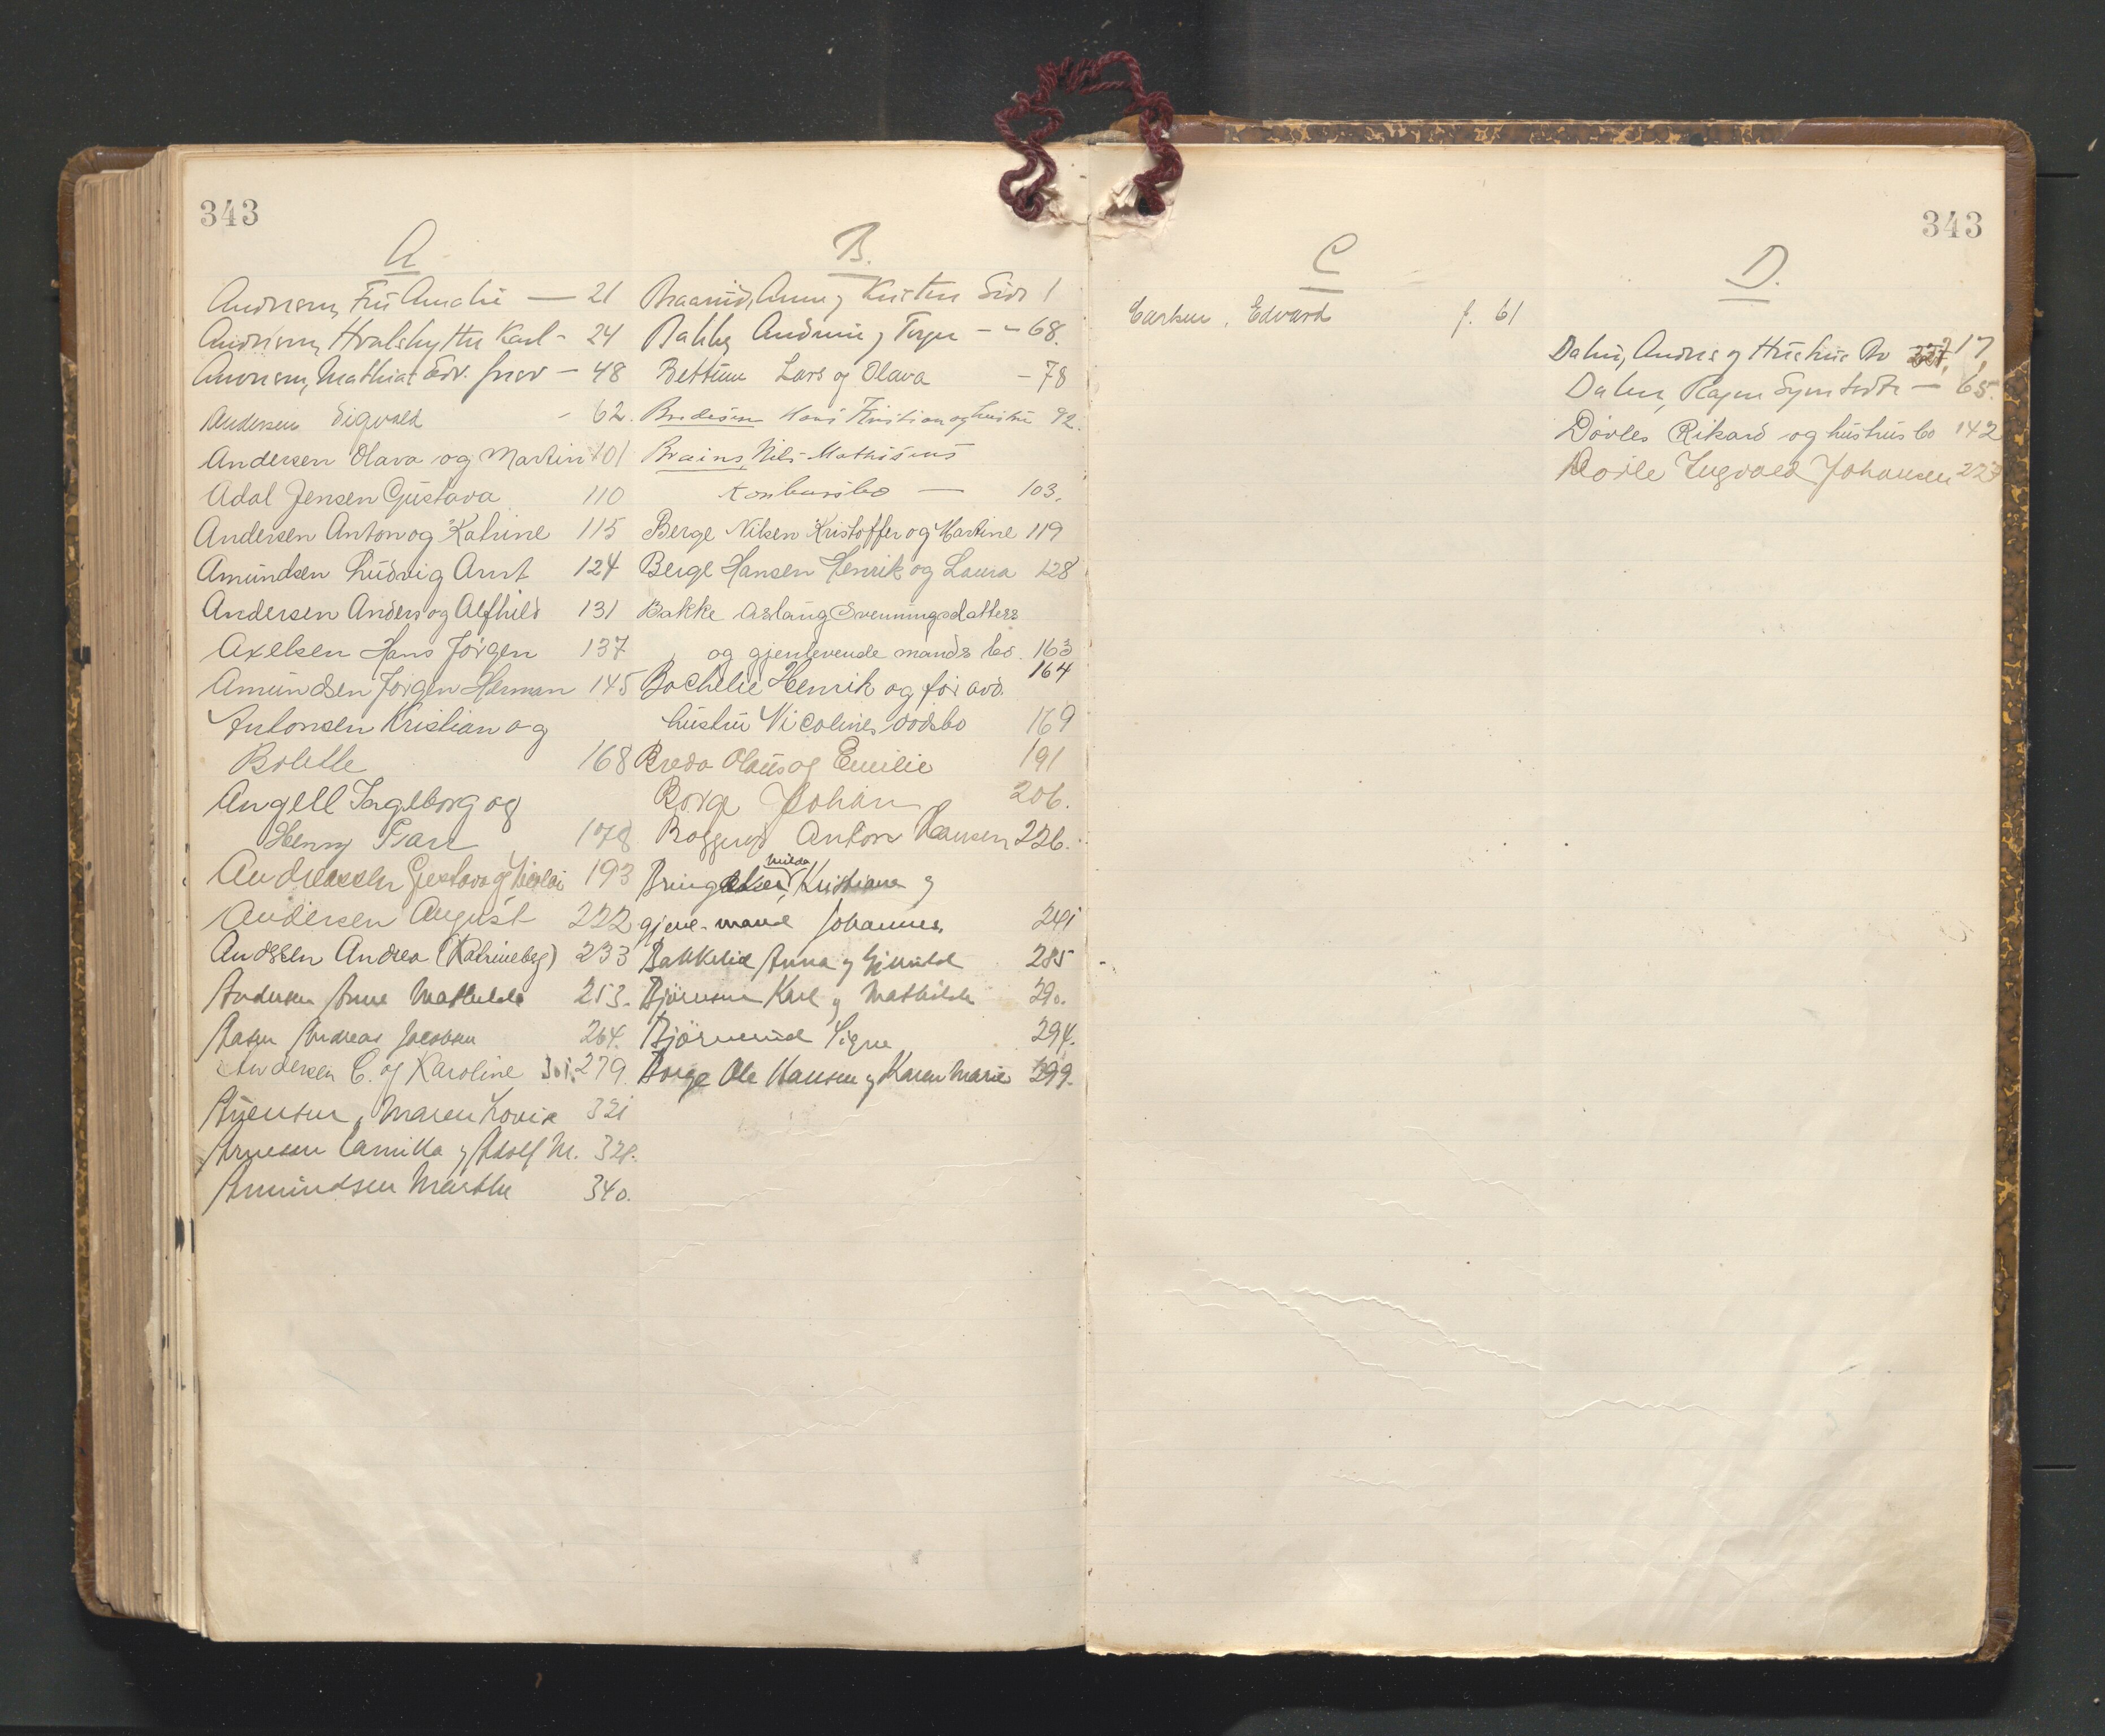 343
A
Andersen, Fru Amalie — 21
Andersen, Hvalshytte Karl - 24
Andersen, Mathias Edv. — 48
Andersen Sigvald - 62.
Andersen Olava og Martin 101
Adal Jensen Gustava 110
Andersen Anton og Katrine 115
Amundsen Ludvig Arnt 124
Andersen Anders og Alfhild 131
Axelsen Hans Jørgen 137
Amundsen Jørgen Herman 145
Antonsen Kristian og
Bolette 168
Angell Ingeborg og
Henry 178
Andreassen Gustava og Nicolai 193
Andersen August 222
Anderssen Andrea (Katrineberg) 233
Andersen Anne Mathilde 253.
Aasen Andreas Jacobsen 264.
Andersen C. og Karoline 301. 279.
Maren Lovise 321
Arnesen Camilla og Adolf M. 328.
Amundsen Marthe 340.
B.
Braarud, Anne og Kristen Side 1
Bakke, Andrine og - - 68.
Bettum Lars og Olava - 78
Bredesen Hans Kristian og hustru 92.
Braines, Nils Mathisens
Konkursbo — 103.
Berge Nilsen Kristoffer og Martine 119
Berge Hansen Henrik og Laura 128
Bakke Aslaug Svenningsdatters
og gjenlevende mands bo. 163
164
Bochelie Henrik og før avd.
hustru Nicolines dødsbo 169
Breda Olaus og Emilie 191
Borge Johan 206.
Anton Hansen 226.
Milda
Bringaker, Kristiane og
gjenl. mand Johannes 241
Bakkelid Anna og 285
Bjørnsen Karl og Mathilde 290.
Signe 294.
Borge Ole Hansen og Karen Marie 299.
343
C
Carlsen, Edvard f. 61
D.
Dalen, Andreas og Hustrus Bo 217,
Dalen, — 65.
Døvles Rikard og hustrus bo 142
Døvle Ingvald Johansen 223